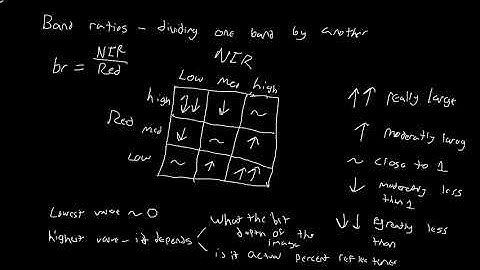 Band ratios - dividing one band by another
br = NIR / Red
NIR
Low Med high
high ↓↓ ↓ ~
Red med ↓ ~ ↑
Low ~ ↑ ↑↑
↑↑ really large
↑ moderately larg
~ close to 1
↓ moderately less
than 1
↓↓ greatly less
than
Lowest value ~ 0
highest value - it depends
what the bit
depth of the
image
is it actual percent reflectance